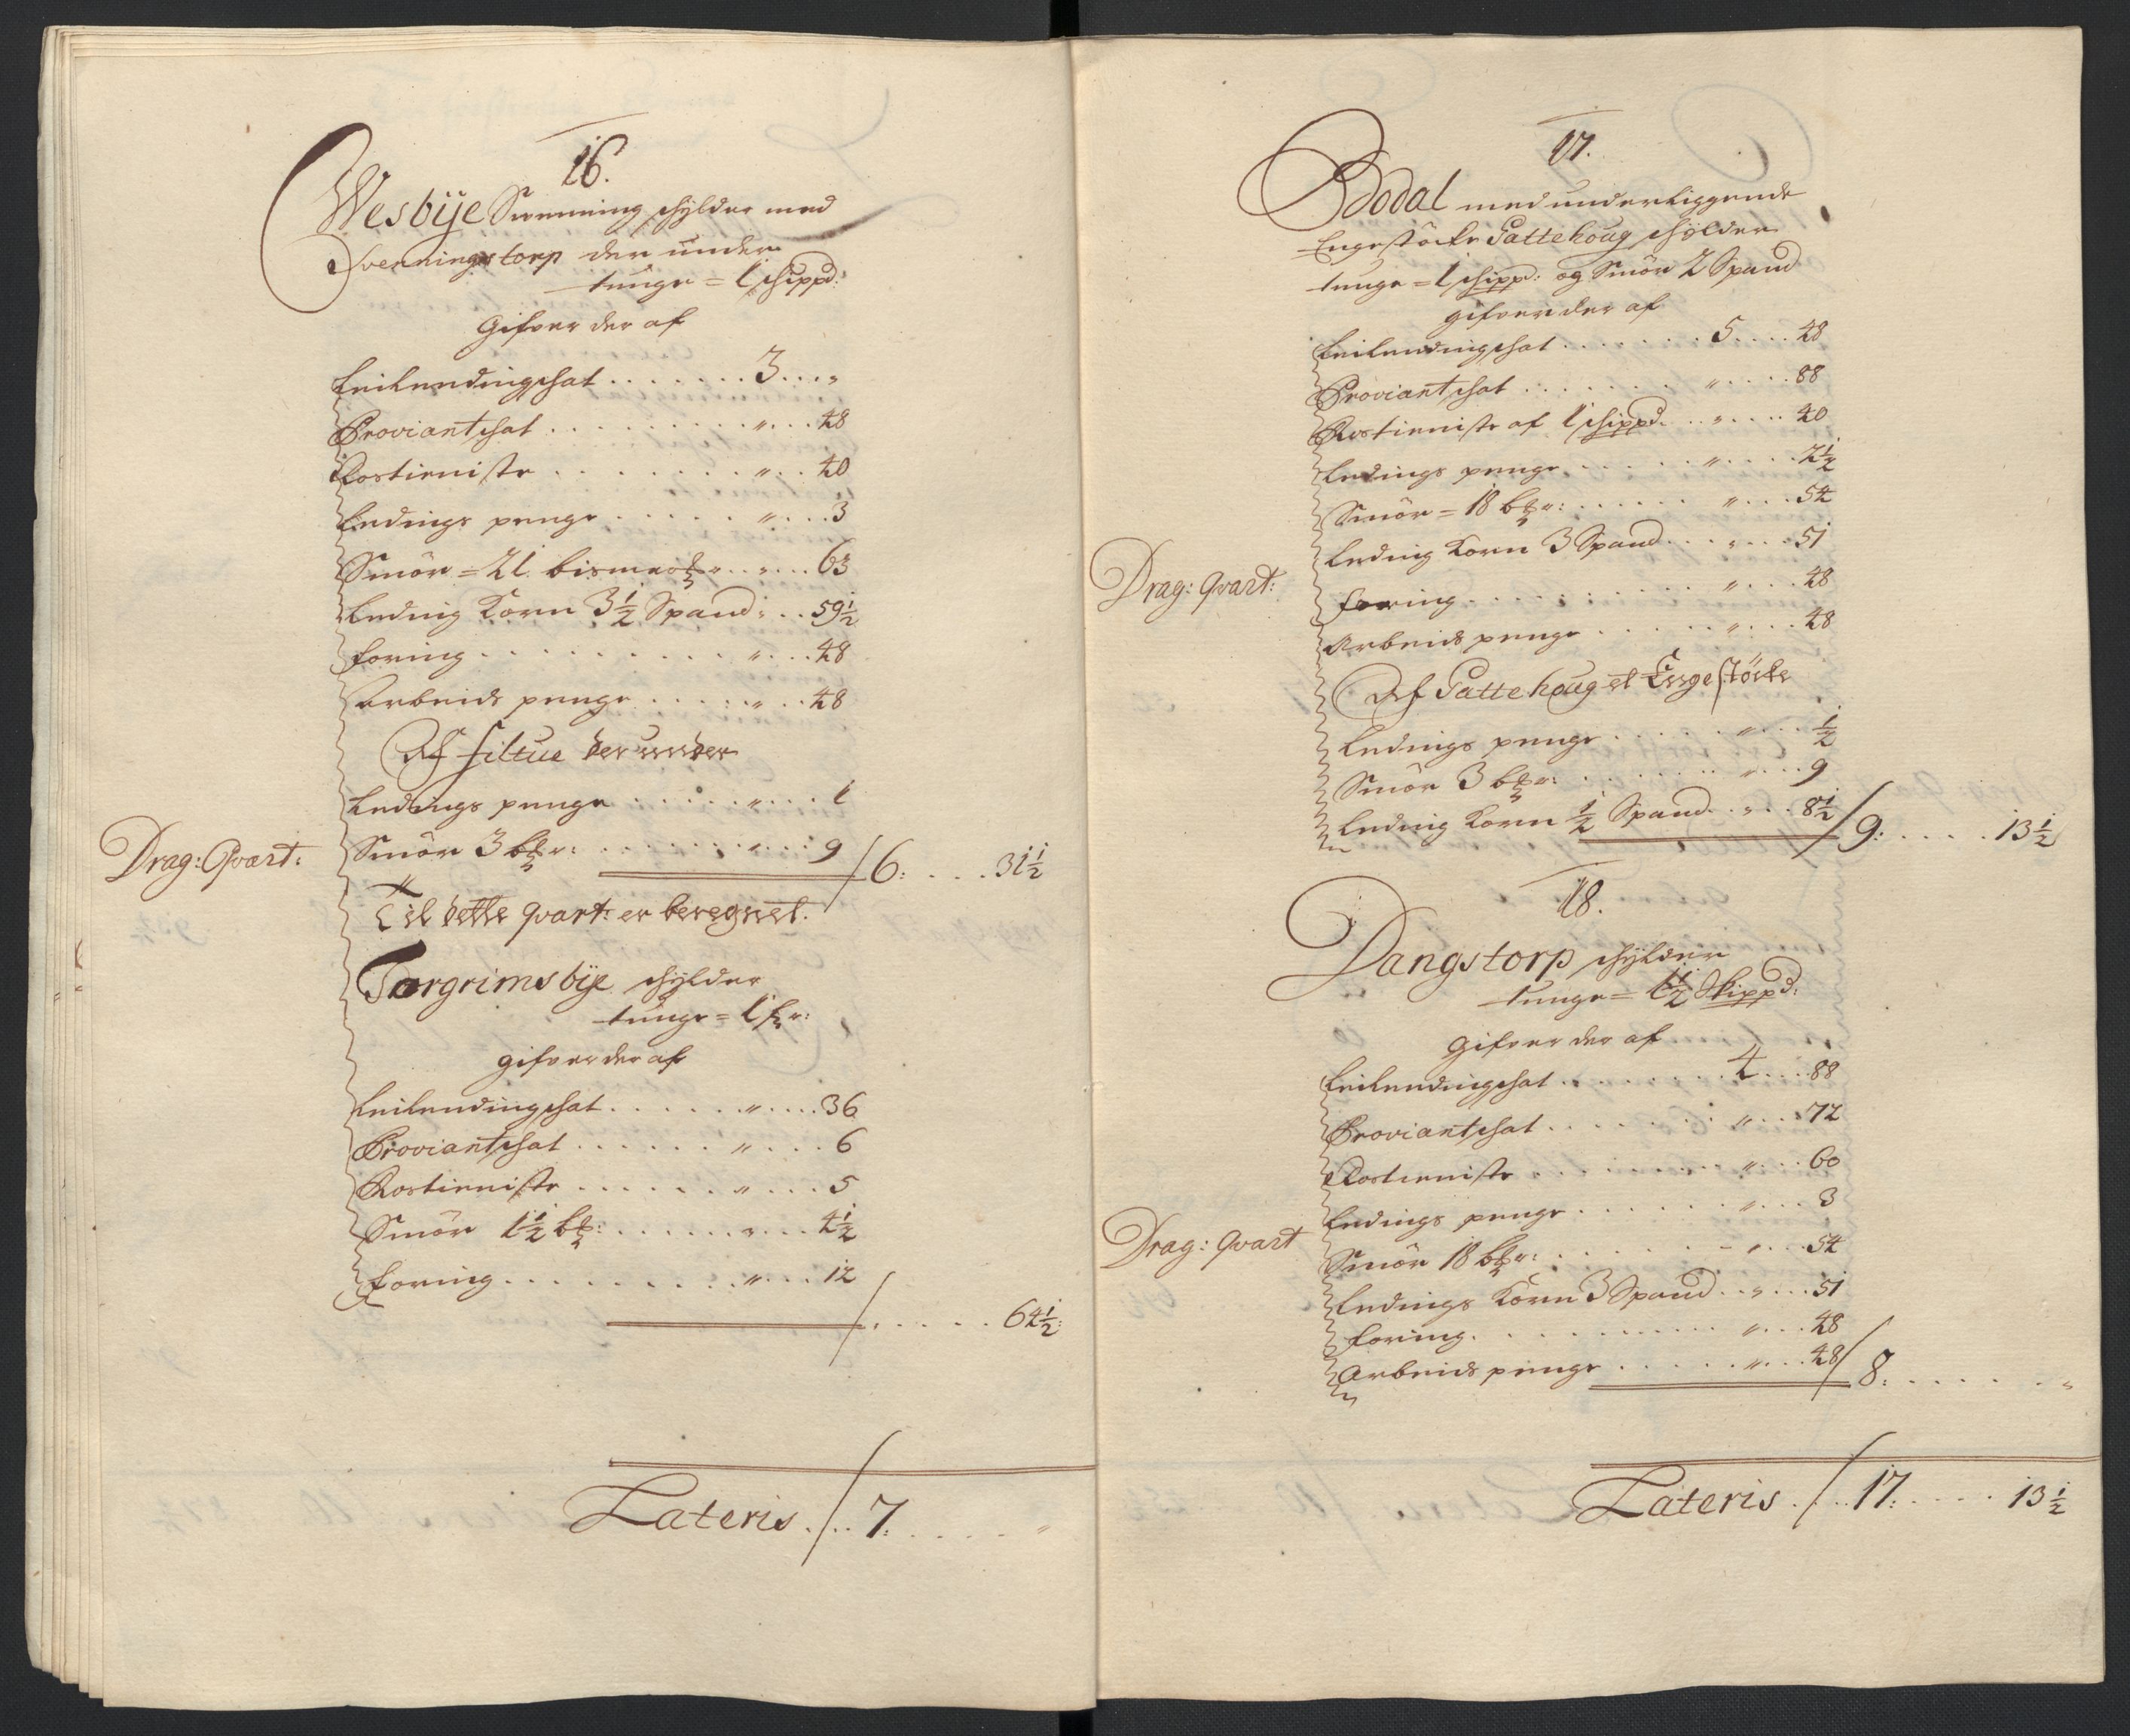 16.
Wesbÿe Svenning schÿlder med
Svenningstorp der under
tunge = 1 schippd:
Gifver der af
Leilendingschat . . . . . . . 3 . . . „
Proviantschat . . . . . . . . „ . . . 48
Rostieniste . . . . . . . „ . . 40
Ledings penge . . . . . „ . . . 3
Smör = 21. bismer℔r . . „ . . . 63
Leding Korn 3½ Spand: . . 59½
Foring . . . . . . . . . „ . . . 48
Arbeids penge . . . . . „ . . 48
Af filtue der under
Ledings penge . . . . . „ . . . 1
Drag: Qvart:
Smör 3 b℔r: . . . . . . . . „ . . . 9 / 6: . . . . 31½
Til dette qvart: er beregnet.
Torgrimsbÿe schÿlder
tunge = 1 ℔r:
gifver der af
Leilendingschat . . . . . . „ . . . . 36
Proviantschat . . . . . . „ . . . . 6
Rostieniste . . . . . . „ . . . . 5
Smör 1½ b℔: . . . . . . „ . . . 4½
Foring . . . . . . . . . „ . . . 12
/ . . . . . 64½:
Lateris . / . . 7: . . . . . „
17.
Bodal med underliggende
Engestöcke Pattehoug schÿlder
tunge = 1 schippd: og Smör 2 Spand
gifver der af
Leilendingschat . . . . . . . 5 . . . . 48
Proviantschat . . . . . . . . „ . . . . 88
Rostieniste af 1 schippd. . . „ . . . . 40
Ledings penge . . . . . „ . . . . 2½
Smör = 18 b℔r: . . . . . . „ . . . 54
Leding Korn 3 Spand . . . „ . . . 51
Drag: qvart:
Foring . . . . . . . . . . „ . . . 48
Arbeids penge . . . . . „ . . . 48
Af Pattehoug et Engestöcke
Ledings penge . . . . . „ . . . ½
Smör 3 b℔r: . . . . . . . „ . . . 9
Leding Korn ½ Spand . . „ . . 8½ / 9: . . . . . 13½
18.
Dangstorp schÿlder
tunge = 1½ Skippd:
gifver der af
Leilendingschat . . . . . . . . 4 . . . . 88
Proviantschat . . . . . . . „ . . . 72
Rostieniste . . . . . . . . „ . . . 60
Ledings penge . . . . . . „ . . . 3
Drag: qvart
Smör 18 b℔r: . . . . . . – „ . . . 54
Ledings Korn 3 Spand . . „ . . . 51
Foring . . . . . . . . . . „ . . . 48
Arbeids penge . . . . . „ . . . 48 / 8: . . . . . . „
Lateris . / . . 17: . . . . . 13½